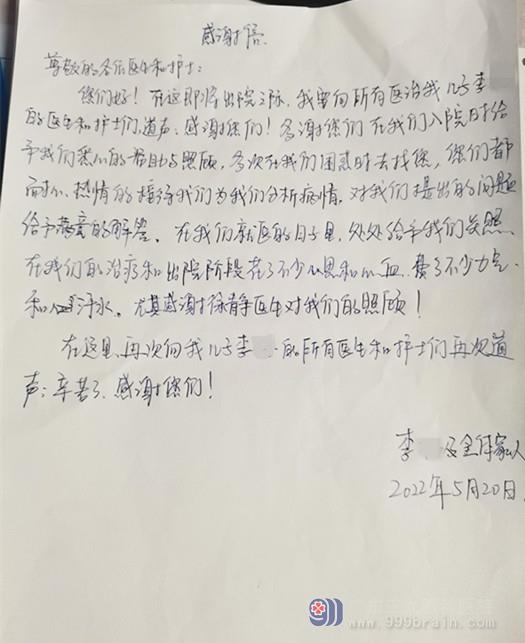 感谢信
尊敬的各位医生和护士:
您们好!在这即将出院之际,我要向所有医治我儿子李
的医生和护士们道声:感谢您们!多谢您们在我们入院时给
予我们悉心的帮助与照顾,多次在我们困惑时去找您,您们都
耐心、热情的接待我们为我们分析病情,对我们提出的问题
给予满意的解答。在我们就医的日子里,处处给予我们关照
在我们的治疗和出院阶段花了不少心思和心血,费了不少力气
和汗水。尤其感谢徐静医生对我们的照顾!
在这里再次向我儿子李 的所有医生和护士们再次道
声:辛苦了、感谢您们!
李 及全体家人
2022年5月20日.
www.999brain.com